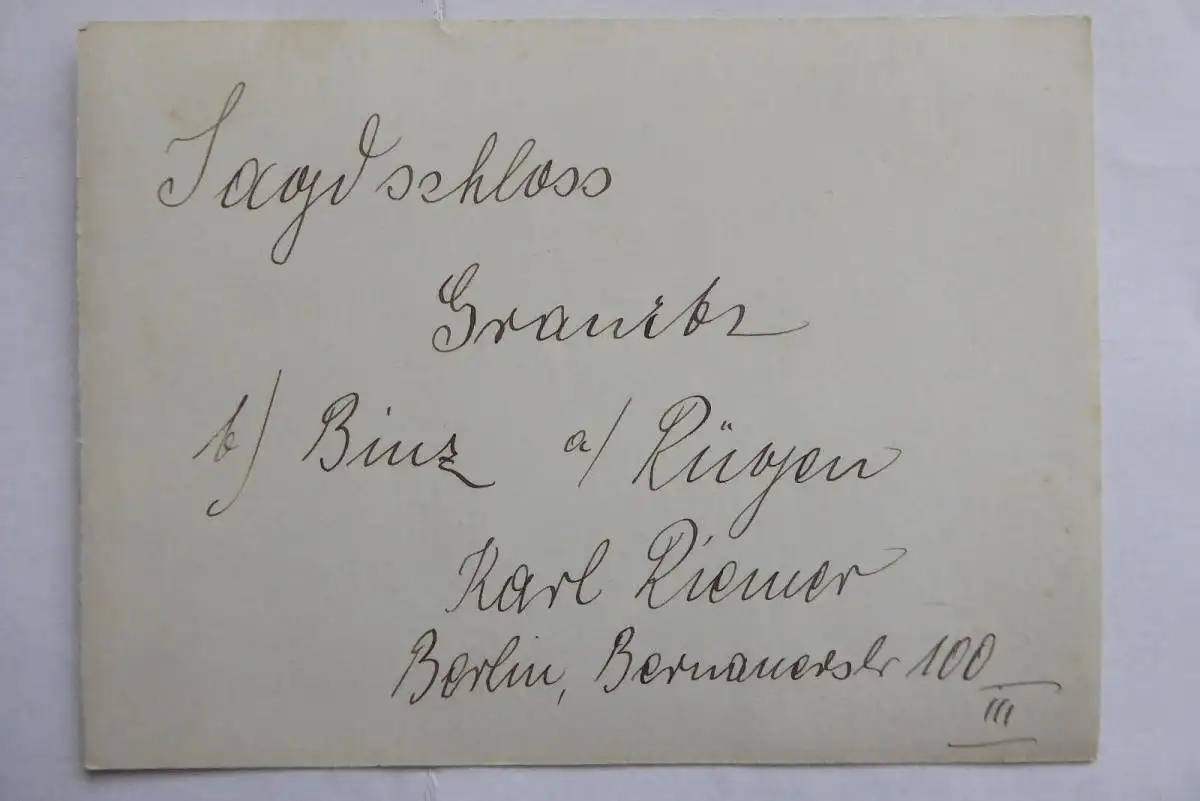 Jagdschloss
Granitz
b/ Binz a/ Rügen
Karl Riemer
Berlin, Bernauerstr 100
III